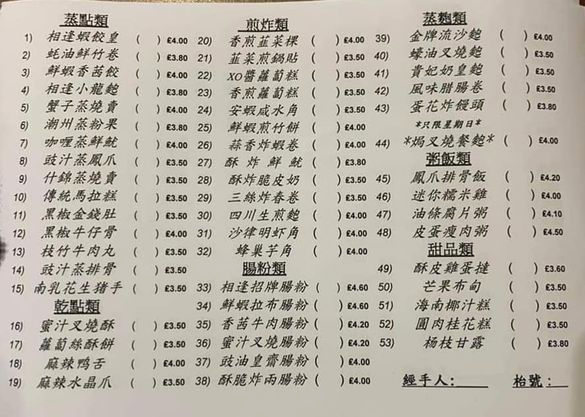 蒸點類
1) 相逢蝦餃皇 ( ) £4.00
2) 蚝油鮮竹卷 ( ) £3.80
3) 鮮蝦香茜餃 ( ) £4.00
4) 相逢小龍飽 ( ) £3.80
5) 蟹子蒸燒賣 ( ) £4.00
6) 潮州蒸粉果 ( ) £3.80
7) 咖喱蒸鮮魷 ( ) £4.00
8) 豉汁蒸鳳爪 ( ) £3.50
9) 什錦蒸燒賣 ( ) £3.50
10) 傳統馬拉糕 ( ) £3.50
11) 黑椒金錢肚 ( ) £3.50
12) 黑椒牛仔骨 ( ) £4.00
13) 枝竹牛肉丸 ( ) £3.50
14) 豉汁蒸排骨 ( ) £3.50
15) 南乳花生猪手 ( ) £3.50
乾點類
16) 蜜汁叉燒酥 ( ) £3.50
17) 蘿蔔絲酥餅 ( ) £3.50
18) 麻辣鸭舌 ( ) £4.00
19) 麻辣水晶爪 ( ) £3.50
煎炸類
20) 香煎韮菜粿 ( ) £4.00
21) 韮菜煎鍋貼 ( ) £4.00
22) XO醬蘿蔔糕 ( ) £3.50
23) 香煎蘿蔔糕 ( ) £3.50
24) 安蝦咸水角 ( ) £3.50
25) 鮮蝦煎竹餅 ( ) £4.00
26) 蒜香炸蝦卷 ( ) £4.00
27) 酥炸鮮魷 ( ) £3.80
28) 酥炸脆皮奶 ( ) £3.50
29) 三絲炸春卷 ( ) £3.50
30) 四川生煎飽 ( ) £4.00
31) 沙律明虾角 ( ) £4.00
32) 蜂巢芋角 ( ) £4.00
腸粉類
33) 相逢招牌腸粉 ( ) £4.60
34) 鮮蝦拉布腸粉 ( ) £4.60
35) 香茜牛肉腸粉 ( ) £4.20
36) 蜜汁叉燒腸粉 ( ) £4.20
37) 豉油皇齋腸粉 ( ) £4.00
38) 酥脆炸兩腸粉 ( ) £4.00
蒸麵類
39) 金牌流沙飽 ( ) £4.00
40) 蠔油叉燒飽 ( ) £3.50
41) 貴妃奶皇飽 ( ) £3.50
42) 風味腊腸卷 ( ) £3.50
43) 蛋花炸饅頭 ( ) £3.80
*只限星期日*
44) *焗叉燒餐飽* ( ) £4.00
粥飯類
45) 鳳爪排骨飯 ( ) £4.20
46) 迷你糯米雞 ( ) £4.00
47) 油條腐片粥 ( ) £4.10
48) 皮蛋瘦肉粥 ( ) £4.50
甜品類
49) 酥皮雞蛋撻 ( ) £3.60
50) 芒果布甸 ( ) £3.50
51) 海南椰汁糕 ( ) £3.50
52) 圓肉桂花糕 ( ) £3.50
53) 杨枝甘露 ( ) £3.80
經手人: 枱號: